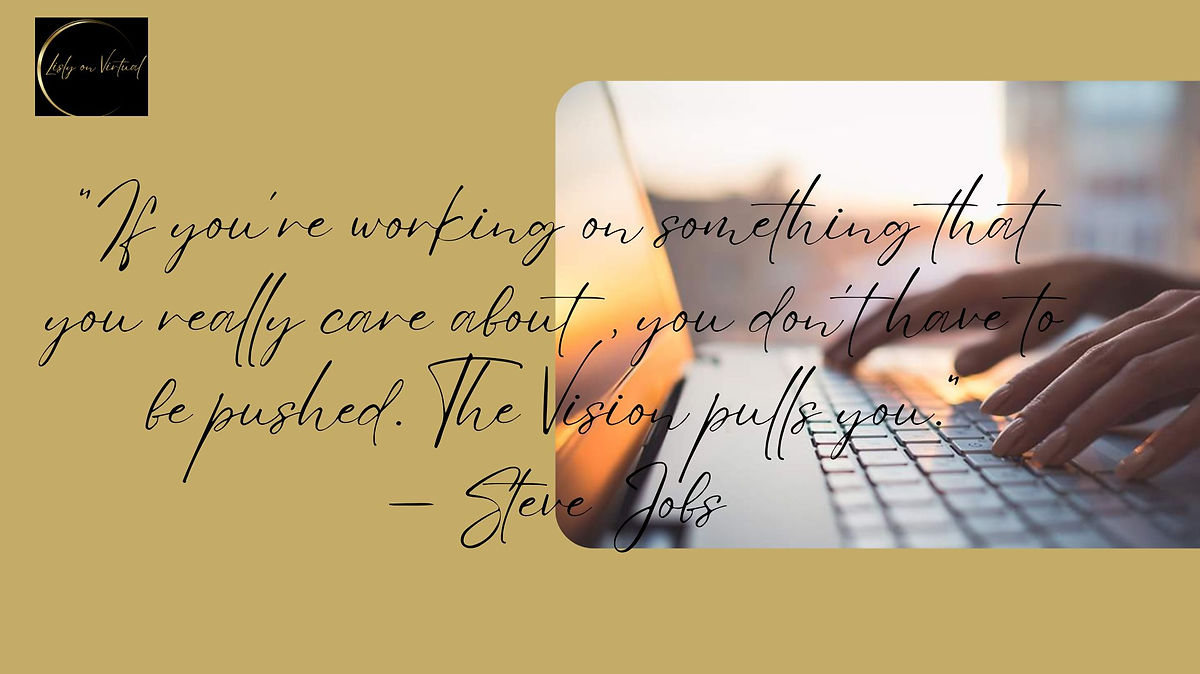 Lisly on Virtual
"If you're working on something that
you really care about , you don't have to
be pushed. The Vision pulls you."
— Steve Jobs